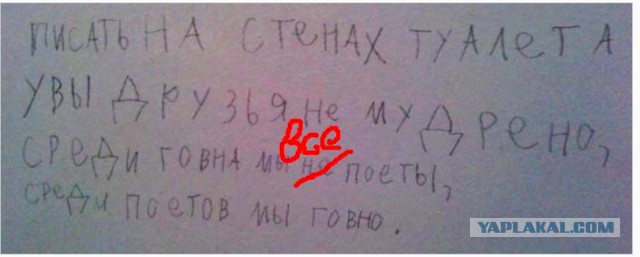 ПИСАТЬ НА СТЕНАХ ТУАЛЕТА
УВЫ ДРУЗЬЯ НЕ МУДРЕНО,
все
СРЕДИ ГОВНА МЫ НЕ ПОЕТЫ,
СРЕДИ ПОЕТОВ МЫ ГОВНО.
YAPLAKAL.COM